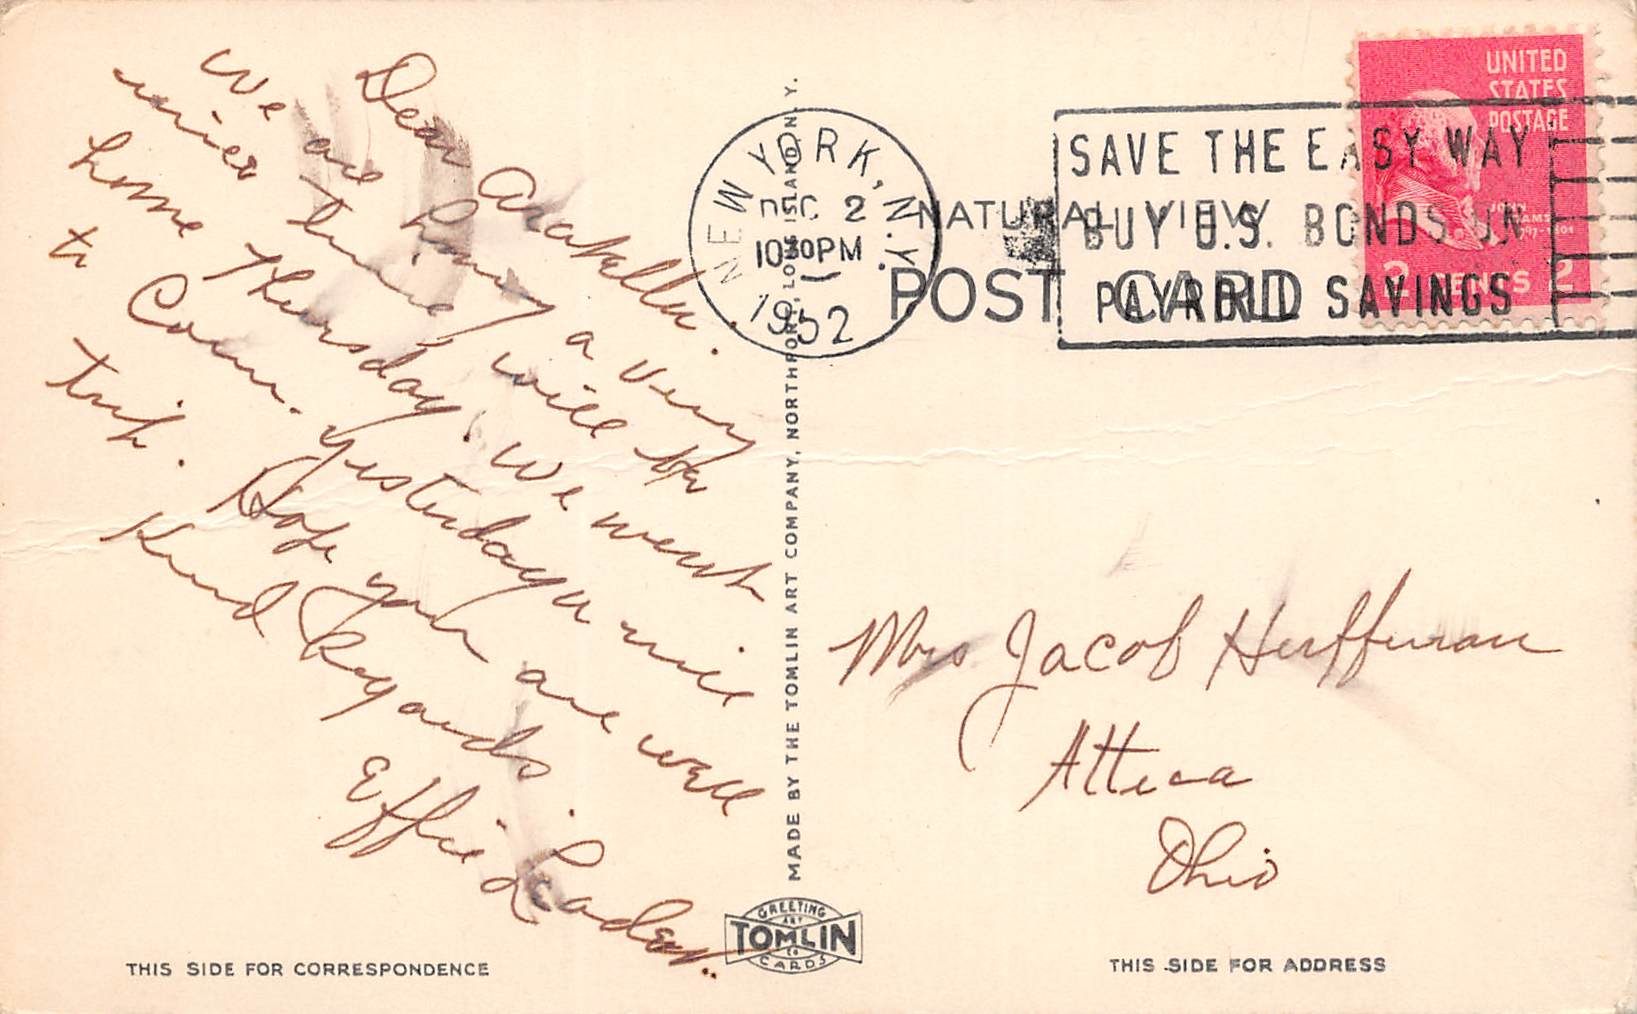 Dear Arabella.
We are having a very
nice time will be
home Thursday. We went
to Conn. yesterday a nice
trip. Hope you are well
Kind Regards.
Effie Leader.
MADE BY THE TOMLIN ART COMPANY, NORTHPORT, LONG ISLAND, N. Y.
NEW YORK, N.Y.
DEC 2
10 30 PM
1952
SAVE THE EASY WAY
BUY U.S. BONDS ON
PAYROLL SAVINGS
UNITED
STATES
POSTAGE
JOHN
ADAMS
1797-1801
2 CENTS 2
NATURAL VIEW
POST CARD
Mrs Jacob Heffernan
Attica
Ohio
GREETING
ART
TOMLIN
CO
CARDS
THIS SIDE FOR CORRESPONDENCE
THIS SIDE FOR ADDRESS